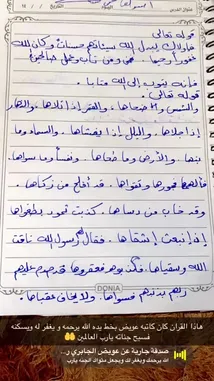 قوله تعالى
فأولئك يبدل الله سيئاتهم حسنات وكان الله
غفورا رحيما ومن تاب وعمل صالحا
فإنه يتوب إلى الله متابا
قوله تعالى:
والشمس وضحاها والقمر إذا تلاها والنهار
إذا جلاها والليل إذا يغشاها والسماء وما
بناها والأرض وما طحاها ونفس وما سواها
فألهمها فجورها وتقواها قد أفلح من زكاها
وقد خاب من دساها كذبت ثمود بطغواها
إذ انبعث أشقاها فقال لهم رسول الله ناقة
الله وسقياها فكذبوه فعقروها فدمدم عليهم
ربهم بذنبهم فسواها ولا يخاف عقباها
DONIA
هاذا القران كان كاتبه عويض بخط يده الله يرحمه و يغفر له ويسكنه
فسيح جناته يارب العالمين 🤲
صدقة جارية عن عويض الجابري ر..
الله يرحمك ويغفر لك ويجعل مثواك الجنه يارب